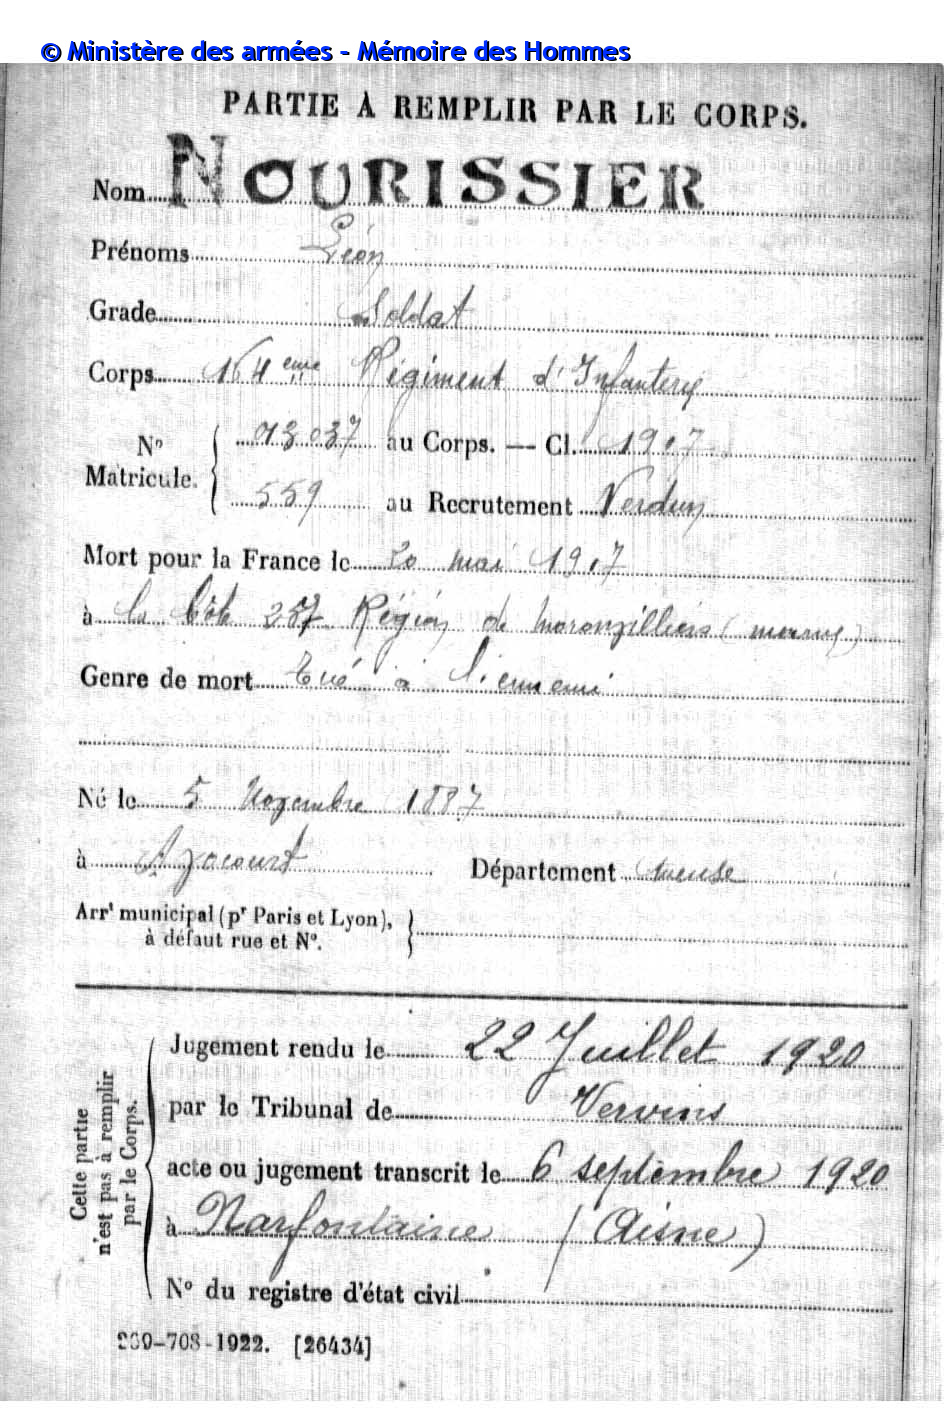 © Ministère des armées - Mémoire des Hommes
PARTIE À REMPLIR PAR LE CORPS.
Nom NOURISSIER
Prénoms Léon
Grade Soldat
Corps 164eme Régiment d'Infanterie
No Matricule. 13037 au Corps. — Cl. 1907
559 au Recrutement Verdun
Mort pour la France le 20 mai 1917
à la Côte Région de (marne)
Genre de mort tué à l'ennemi
Né le 5 Novembre 1887
à Azoourt Département meuse
Arrt municipal (pr Paris et Lyon),
à défaut rue et No.
Cette partie
n'est pas à remplir
par le Corps.
Jugement rendu le 22 Juillet 1920
par le Tribunal de Vervins
acte ou jugement transcrit le 6 septembre 1920
à Harfontaine (Aisne)
No du registre d'état civil
269-708-1922. [26434]